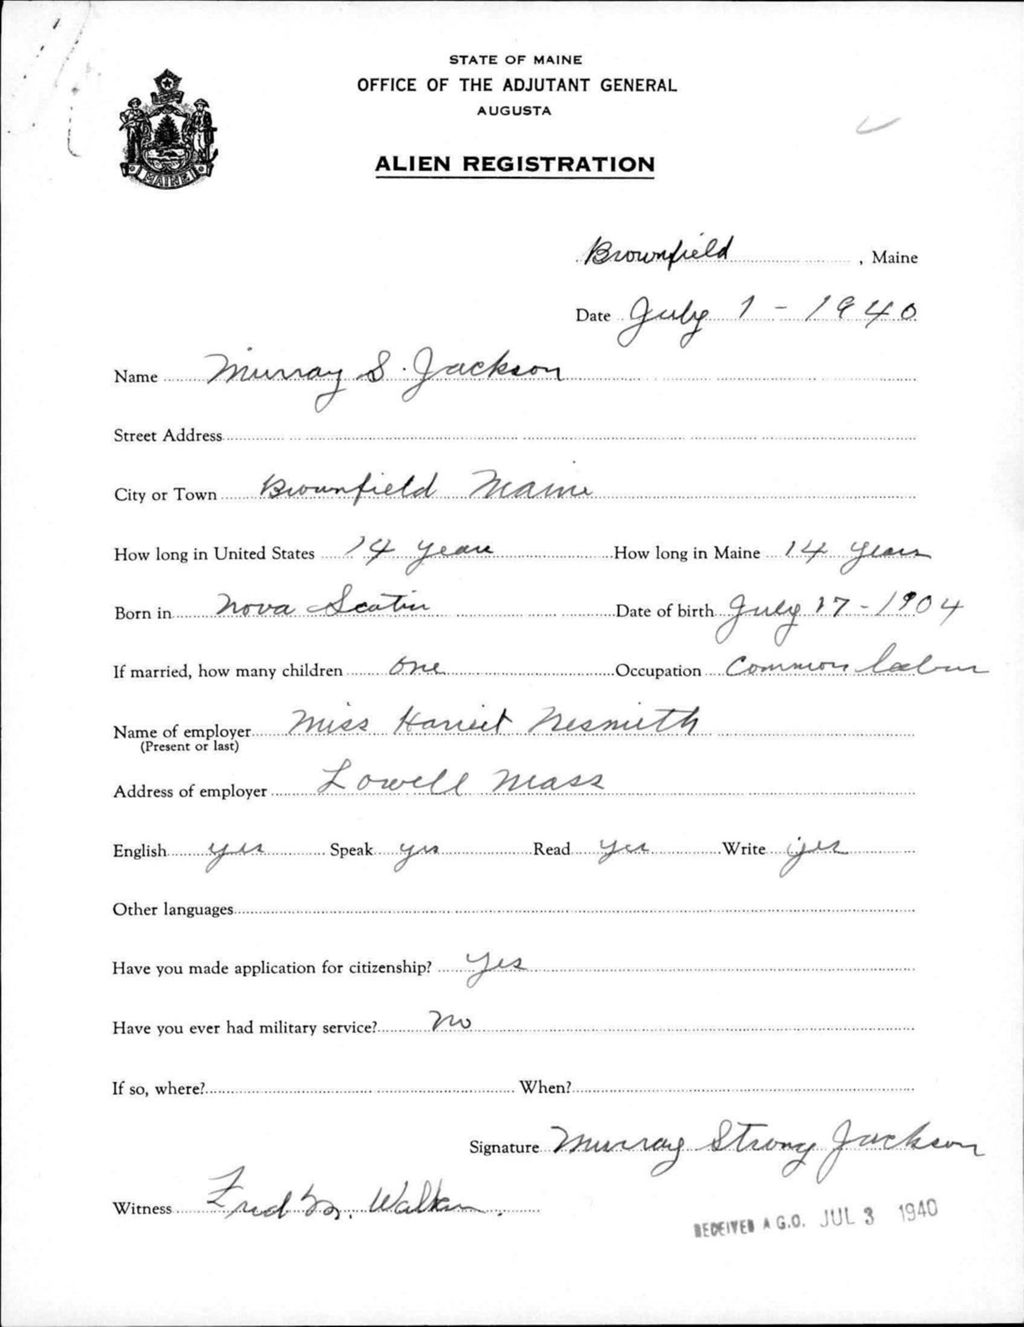 STATE OF MAINE
OFFICE OF THE ADJUTANT GENERAL
AUGUSTA
ALIEN REGISTRATION
MAINE
Brownfield, Maine
Date July 1 - 1940
Name Murray S. Jackson
Street Address
City or Town Brownfield Maine
How long in United States 14 years How long in Maine 14 years
Born in Nova Scotia Date of birth July 17 - 1904
If married, how many children one Occupation Common labor
Name of employer Miss Harriet Nesmith
(Present or last)
Address of employer Lowell Mass
English yes Speak yes Read yes Write yes
Other languages
Have you made application for citizenship? Yes
Have you ever had military service? No
If so, where? When?
Signature Murray Strong Jackson
Witness Fred M. Walker.
RECEIVED A.G.O. JUL 3 1940